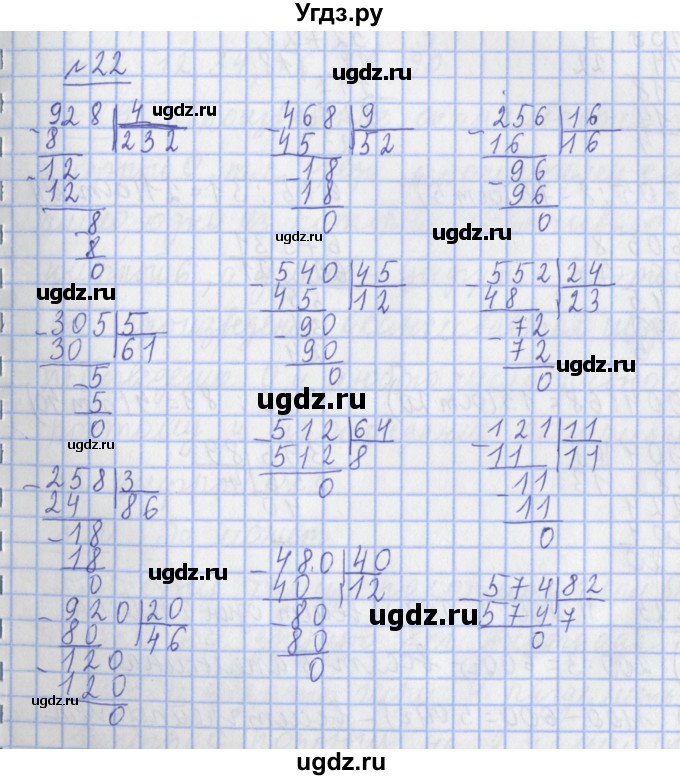 Угдз.ру
№22
ugdz.ru
928 | 4
8 | 232
12
12
8
8
0
ugdz.ru
305 | 5
30 | 61
5
5
0
ugdz.ru
258 | 3
24 | 86
18
18
0
ugdz.ru
920 | 20
80 | 46
120
120
0
ugdz.ru
ugdz.ru
468 | 9
45 | 52
18
18
0
ugdz.ru
540 | 45
45 | 12
90
90
0
ugdz.ru
512 | 64
512 | 8
0
480 | 40
40 | 12
80
80
0
256 | 16
16 | 16
96
96
0
ugdz.ru
552 | 24
48 | 23
72
72
0
ugdz.ru
121 | 11
11 | 11
11
11
0
574 | 82
574 7
0
ugdz.ru
ugdz.ru
ugdz.ru